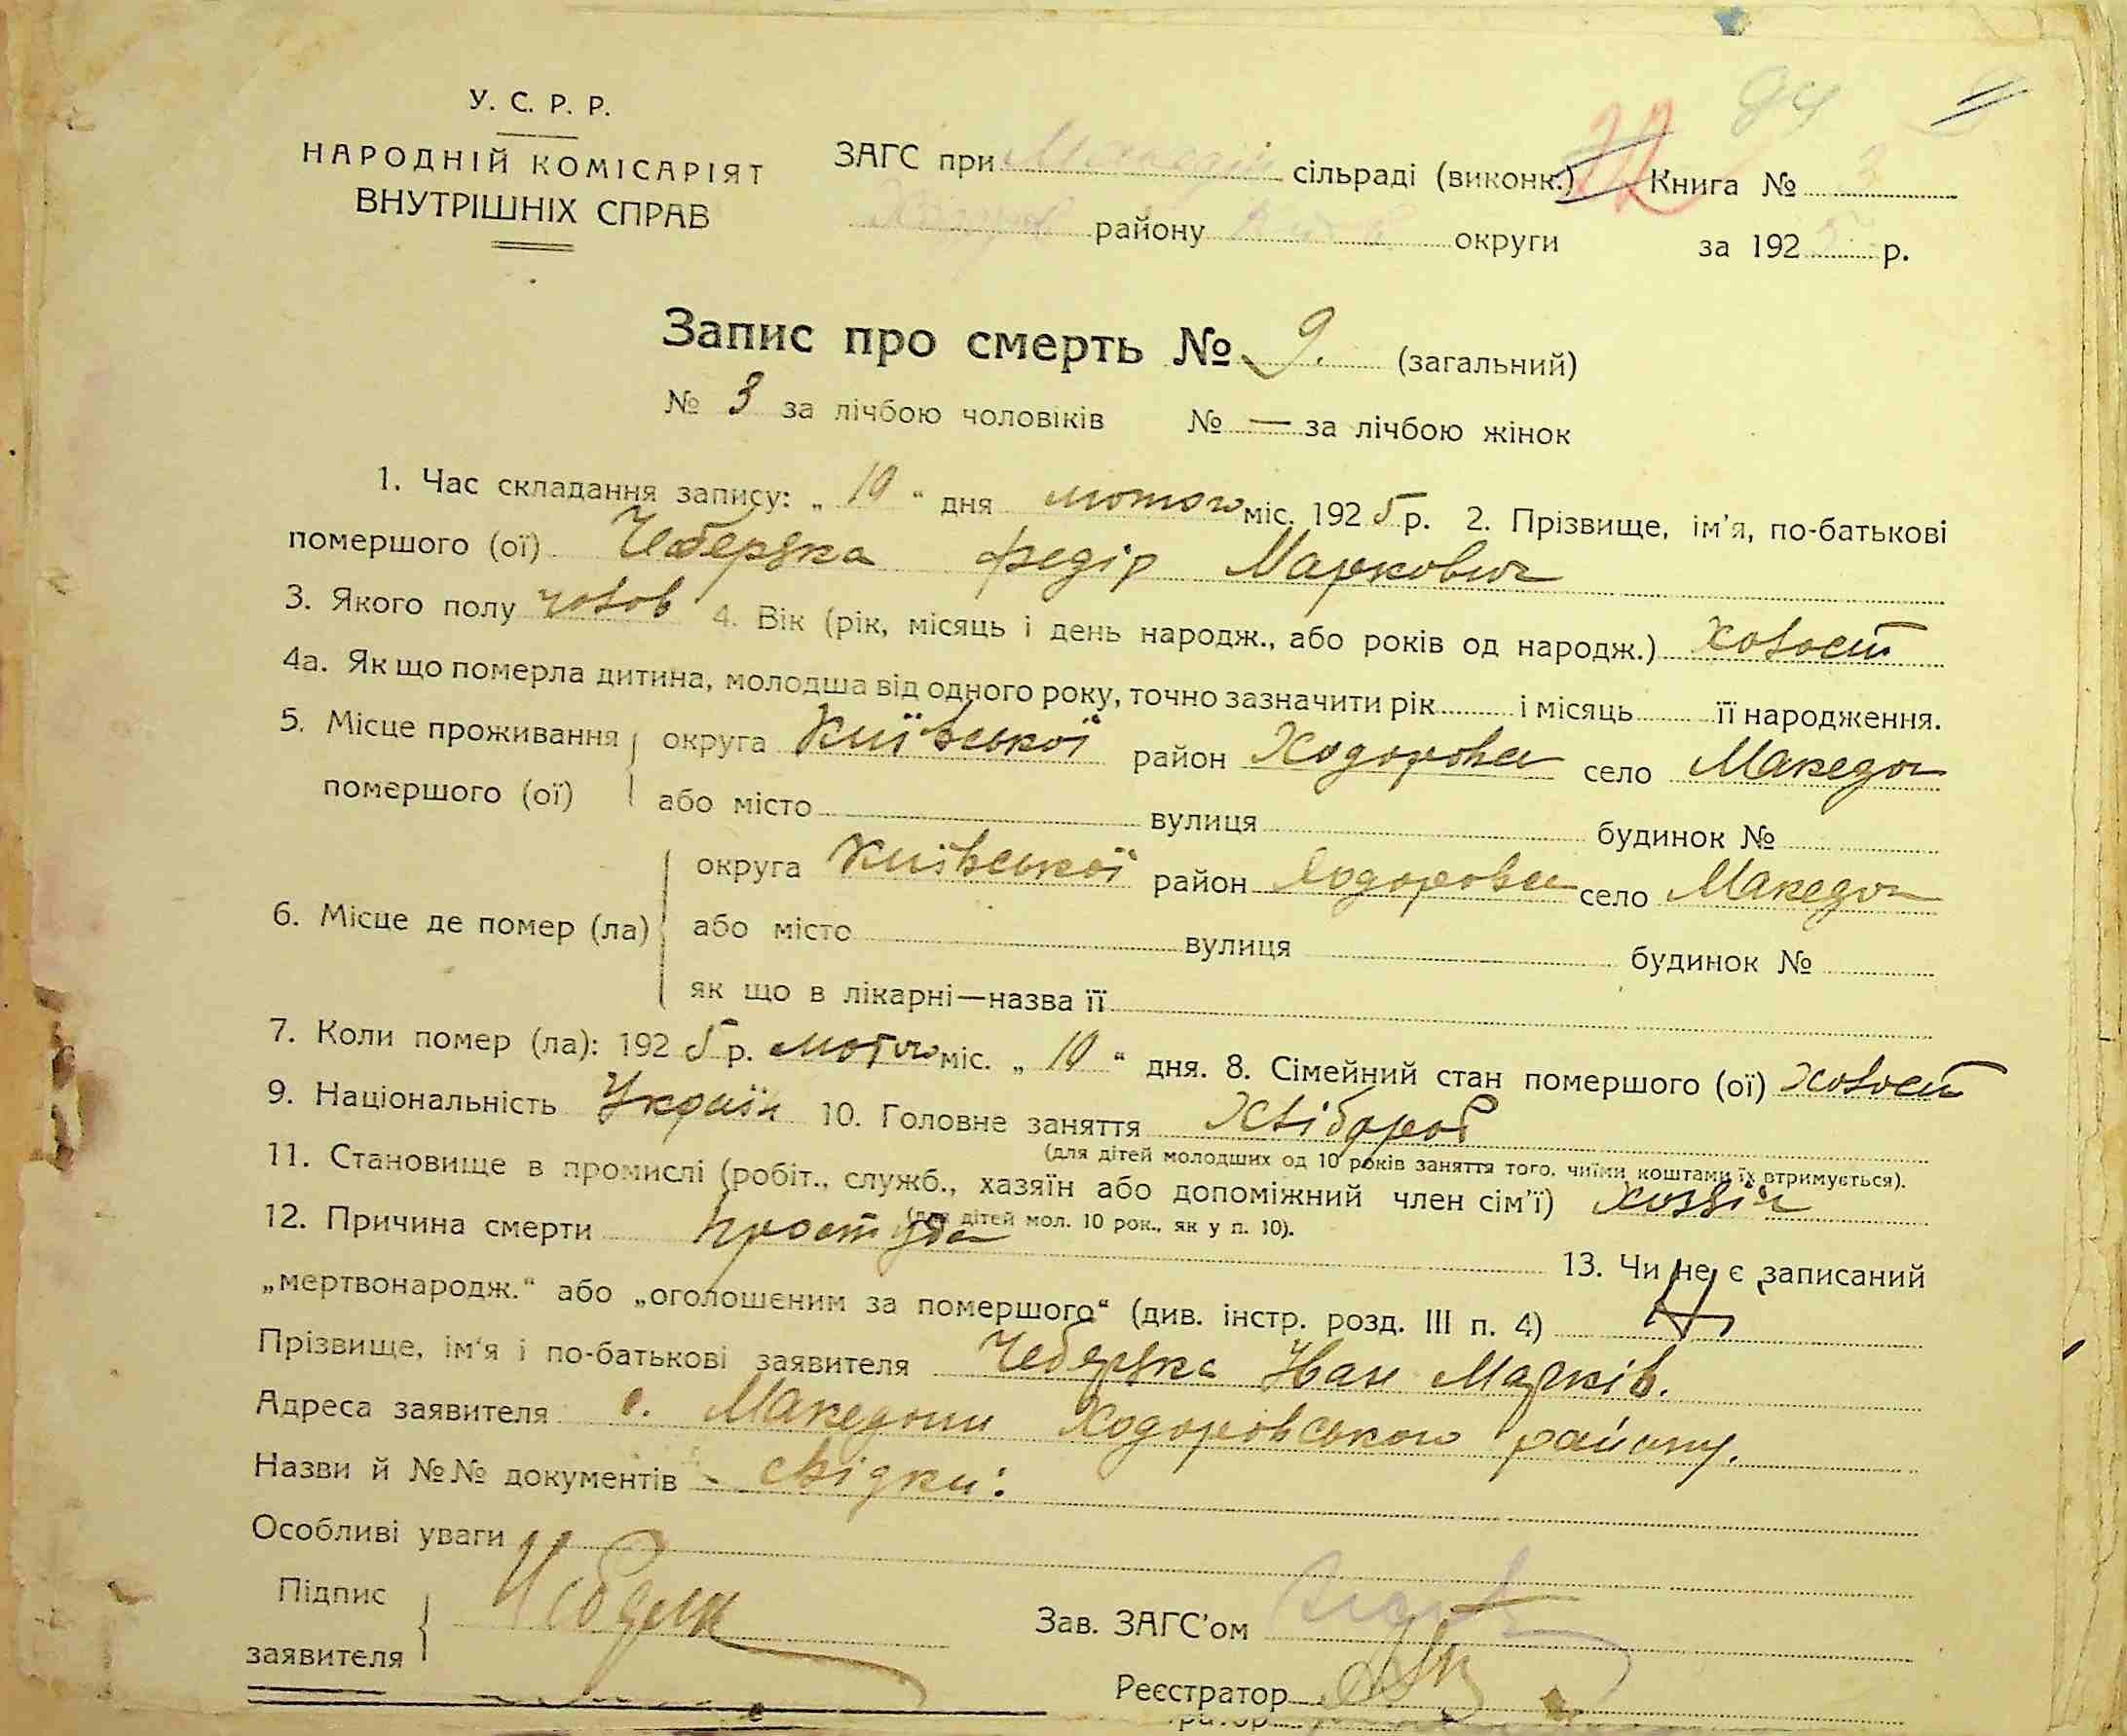 У. С. Р. Р.
НАРОДНІЙ КОМІСАРІЯТ
ВНУТРІШНІХ СПРАВ
ЗАГС при сільраді (виконк.) Книга № 3
району округи за 1925 р.
94
Запис про смерть № 9. (загальний)
№ 3 за лічбою чоловіків № — за лічбою жінок
1. Час складання запису: „ 10 “ дня лютого міс. 1925 р. 2. Прізвище, ім'я, по-батькові
помершого (ої) Чеберяка Федір Маркович
3. Якого полу чолов 4. Вік (рік, місяць і день народж., або років од народж.) холост
4а. Як що померла дитина, молодша від одного року, точно зазначити рік і місяць її народження.
5. Місце проживання помершого (ої) округа Київської район Ходоровсь село Македон
або місто вулиця будинок №
6. Місце де помер (ла) округа Київської район Ходоровсь село Македон
або місто вулиця будинок №
як що в лікарні—назва її
7. Коли помер (ла): 1925 р. лютого міс. „ 10 “ дня. 8. Сімейний стан помершого (ої) холост
9. Національність Україн 10. Головне заняття Хлібороб
(для дітей молодших од 10 років заняття того, чиїми коштами їх втримується).
11. Становище в промислі (робіт., служб., хазяїн або допоміжний член сім'ї) хозяін
(для дітей мол. 10 рок., як у п. 10).
12. Причина смерти простуда 13. Чи не є записаний
„мертвонародж.“ або „оголошеним за помершого“ (див. інстр. розд. III п. 4) Ні
Прізвище, ім'я і по-батькові заявителя Чеберяка Иван Марків.
Адреса заявителя с. Македони Ходоровського району.
Назви й №№ документів свідки:
Особливі уваги
Підпис заявителя
Зав. ЗАГС'ом
Реєстратор